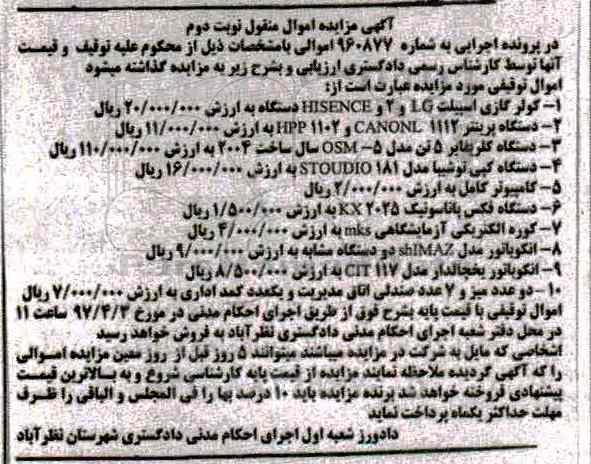 آگهی مزایده اموال منقول نوبت دوم
در پرونده اجرایی به شماره 960877 اموالی بامشخصات ذیل از محکوم علیه توقیف و قیمت
آنها توسط کارشناس رسمی دادگستری ارزیابی و بشرح زیر به مزایده گذاشته میشود
اموال توقیفی مورد مزایده عبارت است از:
۱- کولر گازی اسپلت LG و ۲ و HISENCE دستگاه به ارزش ۲۰/۰۰۰/۰۰۰ ریال
۲- دستگاه پرینتر CANONL ۱۱۱۲ و HPP ۱۱۰۲ به ارزش ۱۱/۰۰۰/۰۰۰ ریال
۳- دستگاه کلریفایر ۵ تن مدل OSM -۵ سال ساخت ۲۰۰۴ به ارزش ۱۱۰/۰۰۰/۰۰۰ ریال
۴- دستگاه کپی توشیبا مدل STOUDIO ۱۸۱ به ارزش ۱۶/۰۰۰/۰۰۰ ریال
۵- کامپیوتر کامل به ارزش ۲/۰۰۰/۰۰۰ ریال
۶- دستگاه فکس پاناسونیک KX ۲۰۲۵ به ارزش ۱/۵۰۰/۰۰۰ ریال
۷- کوره الکتریکی آزمایشگاهی mks به ارزش ۴/۰۰۰/۰۰۰ ریال
۸- انکوباتور مدل shIMAZ دو دستگاه مشابه به ارزش ۹/۰۰۰/۰۰۰ ریال
۹- انکوباتور یخچالدار مدل CIT ۱۱۷ به ارزش ۸/۵۰۰/۰۰۰ ریال
۱۰- دو عدد میز و ۷ عدد صندلی اتاق مدیریت و یکعدد کمد اداری به ارزش ۷/۰۰۰/۰۰۰ ریال
اموال توقیفی با قیمت پایه بشرح فوق از طریق اجرای احکام مدنی در مورخ ۹۷/۴/۳ ساعت ۱۱
در محل دفتر شعبه اجرای احکام مدنی دادگستری نظرآباد به فروش خواهد رسید
اشخاصی که مایل به شرکت در مزایده میباشند میتوانند ۵ روز قبل از روز معین مزایده اموالی
را که آگهی گردیده ملاحظه نمایند مزایده از قیمت پایه کارشناسی شروع و به بالاترین قیمت
پیشنهادی فروخته خواهد شد برنده مزایده باید ۱۰ درصد بها را فی المجلس و الباقی را ظرف
مهلت حداکثر یکماه پرداخت نماید
دادورز شعبه اول اجرای احکام مدنی دادگستری شهرستان نظرآباد